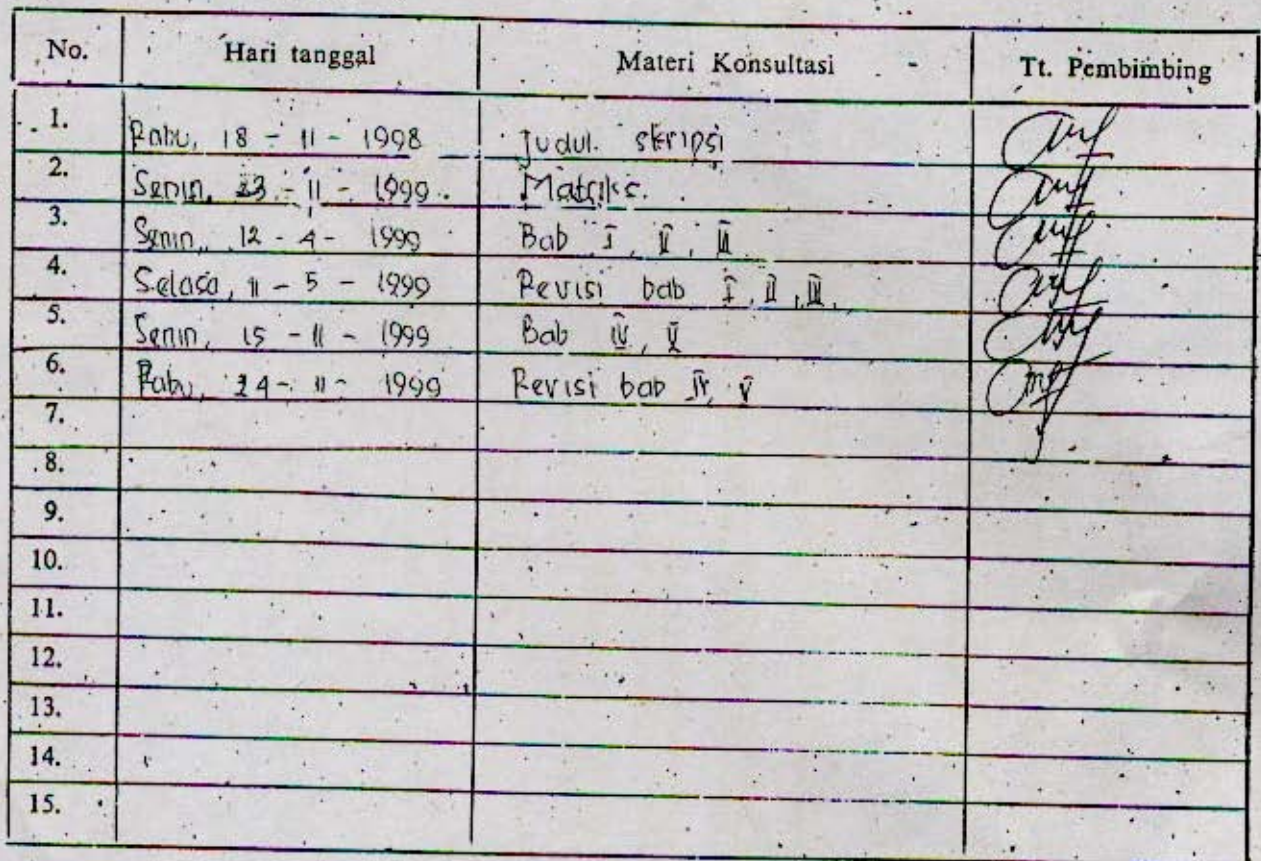 No. Hari tanggal Materi Konsultasi Tt. Pembimbing
1. Rabu, 18 - 11 - 1998 Judul skripsi
2. Senin, 23 - 11 - 1999. Matriks.
3. Senin, 12 - 4 - 1999 Bab I, II, III
4. Selasa, 11 - 5 - 1999 Revisi bab I, II, III,
5. Senin, 15 - 11 - 1999 Bab IV, V
6. Rabu, 24 - 11 - 1999 Revisi bab IV, V
7.
8.
9.
10.
11.
12.
13.
14.
15.